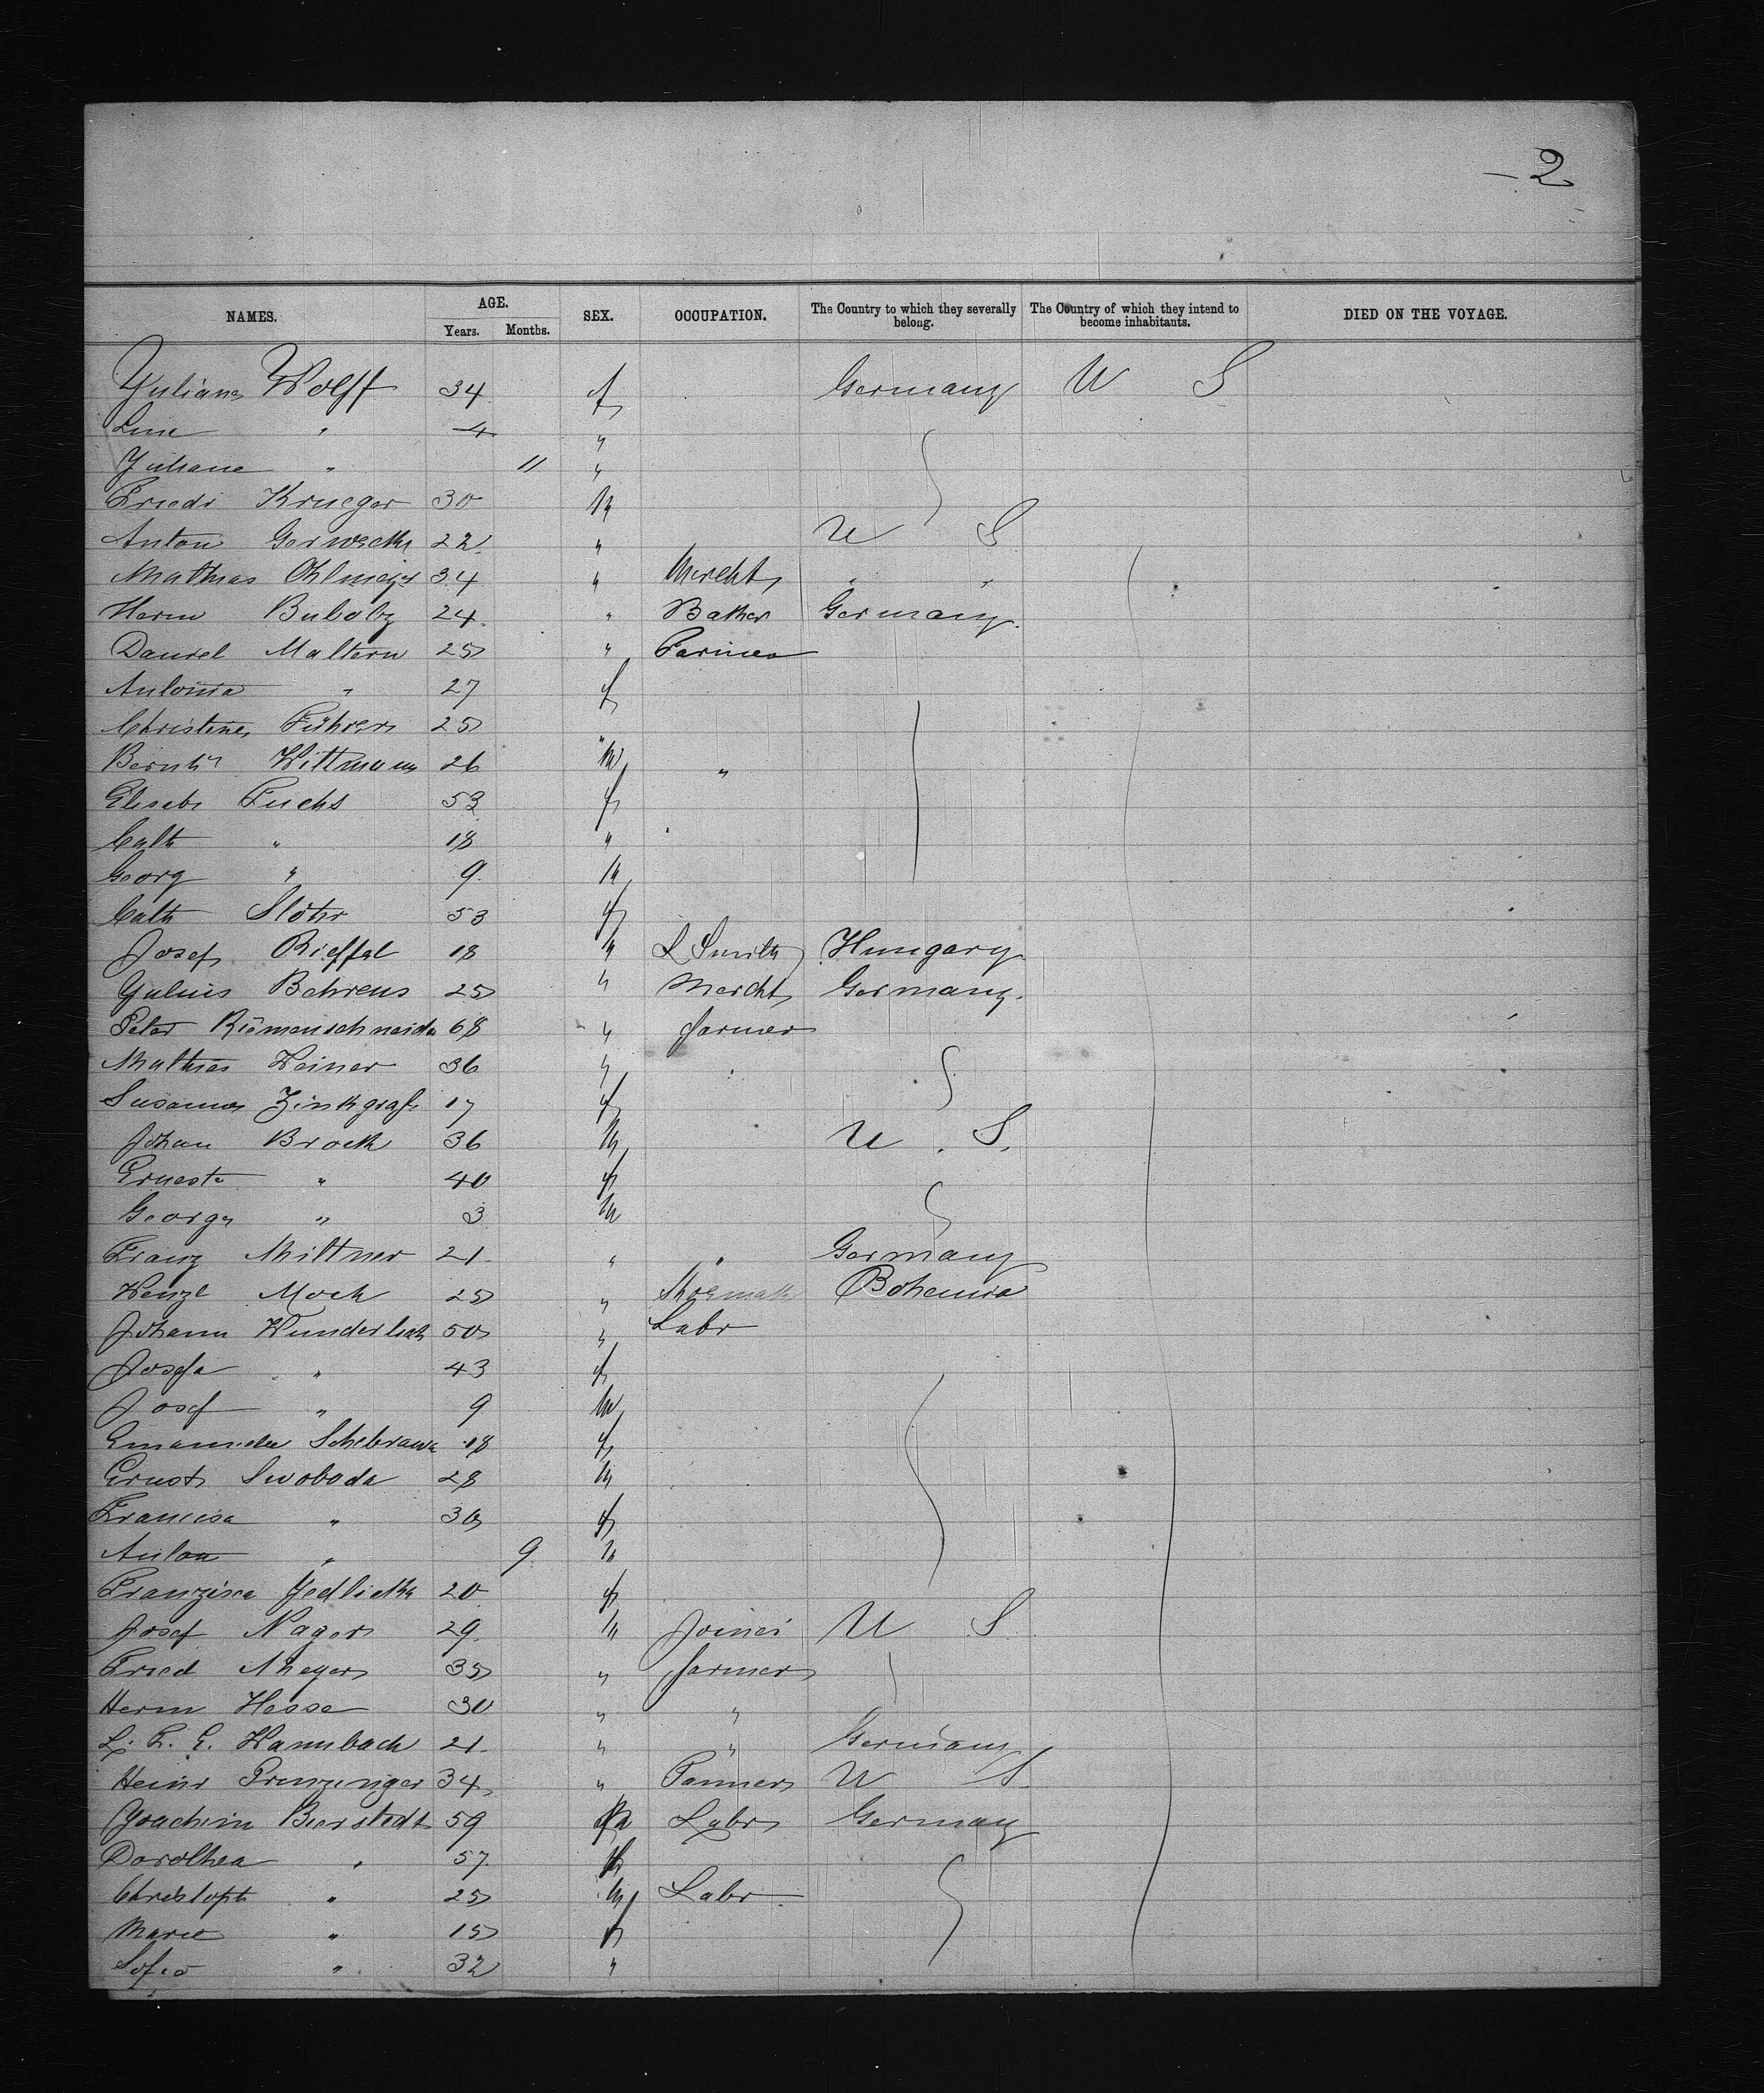 - 2
NAMES. AGE. Years. Months. SEX. OCCUPATION. The Country to which they severally belong. The Country of which they intend to become inhabitants. DIED ON THE VOYAGE.
Juliana Wolff 34 f Germany U S
Line " 4 "
Juliane " 11 "
Friedr Krueger 30 M
Anton 22 " U S
Mathias Ohlmeyer 34 " Mercht " "
Herm Bubolz 24 " Baker Germany
Daniel Maltern 25 " Farmer
Antonia " 27 f
Christine Führer 25 "
Bernh Wittmann 26 M "
Elisab Fuchs 53 f
Cath " 18 "
Georg " 9 M
Cath Stöhr 53 f
Josef Rieffel 18 M L Smith Hungary
Julius Behrens 25 " Mercht Germany
Peter Riemenschneider 68 " farmer
Mathias Weiner 36 "
Susanna Zinkgraf 17 f
Johan Brock 36 M U. S.
Ernest " 40 f
Georg " 3 M
Franz Mittner 21 " " Germany
Wenzl Moch 25 " Shoemak Bohemia
Johann Wunderlich 50 " Labr
Josefa " 43 f
Josef " 9 M
18 f
Ernst Swoboda 28 M
Francisa " 30 f
Anton " 9 M
Franzisca Jedlicka 20 f
Josef Nager 29 M Joiner U S
Fried Meyer 35 " farmer
Herm Hesse 30 " "
L. F. E. Wambach 21 " " Germany
Heinr 34 " Tanner U S
Joachim Bierstedt 59 M Labr Germany
Dorothea " 57 f
Christoph " 25 M Labr
Marie " 15 f
Sofia " 32 "